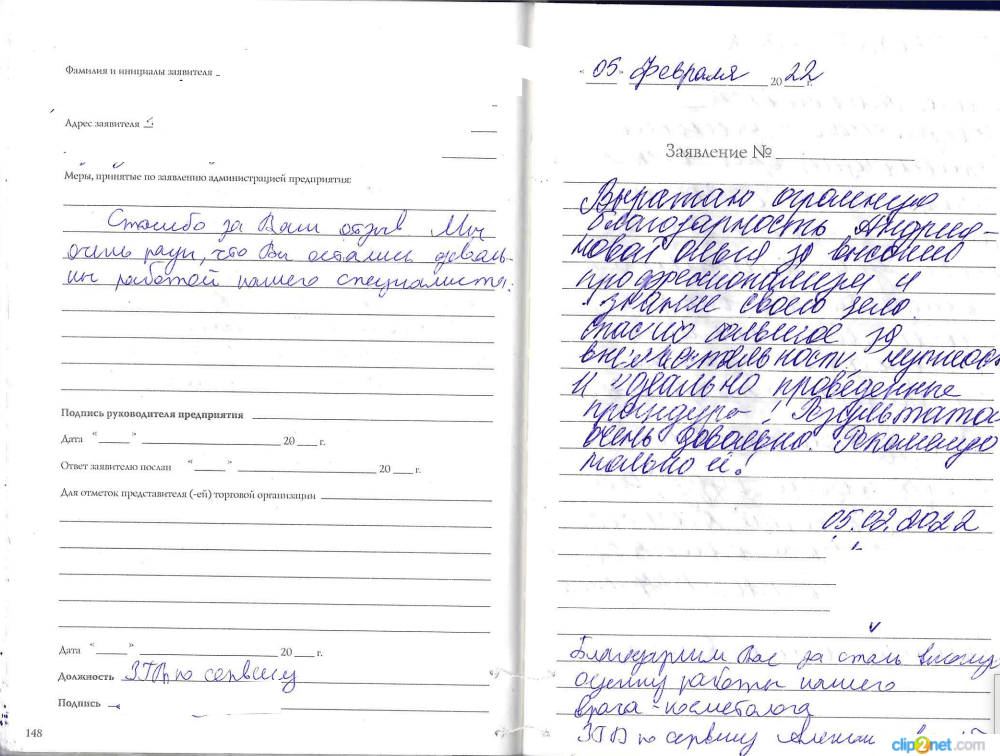 Фамилия и инициалы заявителя
Адрес заявителя
Меры, принятые по заявлению администрацией предприятия:
Спасибо за Ваш отзыв. Мы
очень рады, что Вы остались доволь-
ны работой нашего специалиста.
Подпись руководителя предприятия
Дата « » 20 г.
Ответ заявителю послан « » 20 г.
Для отметок представителя (-ей) торговой организации
Дата « » 20 г.
Должность ЗГВ по сервису
Подпись
148
« 05 » февраля 2022 г.
Заявление №
Выражаю огромную
благодарность
за высокий
профессионализм и
знание своего дела.
Спасибо большое за
внимательность
и идеально проведенные
процедуры! Результатом
очень довольна. Рекомендую
только её!
05.02.2022
Благодарим Вас за столь высокую
оценку работы нашего
врача-косметолога
ЗГВ по сервису
clip2net.com